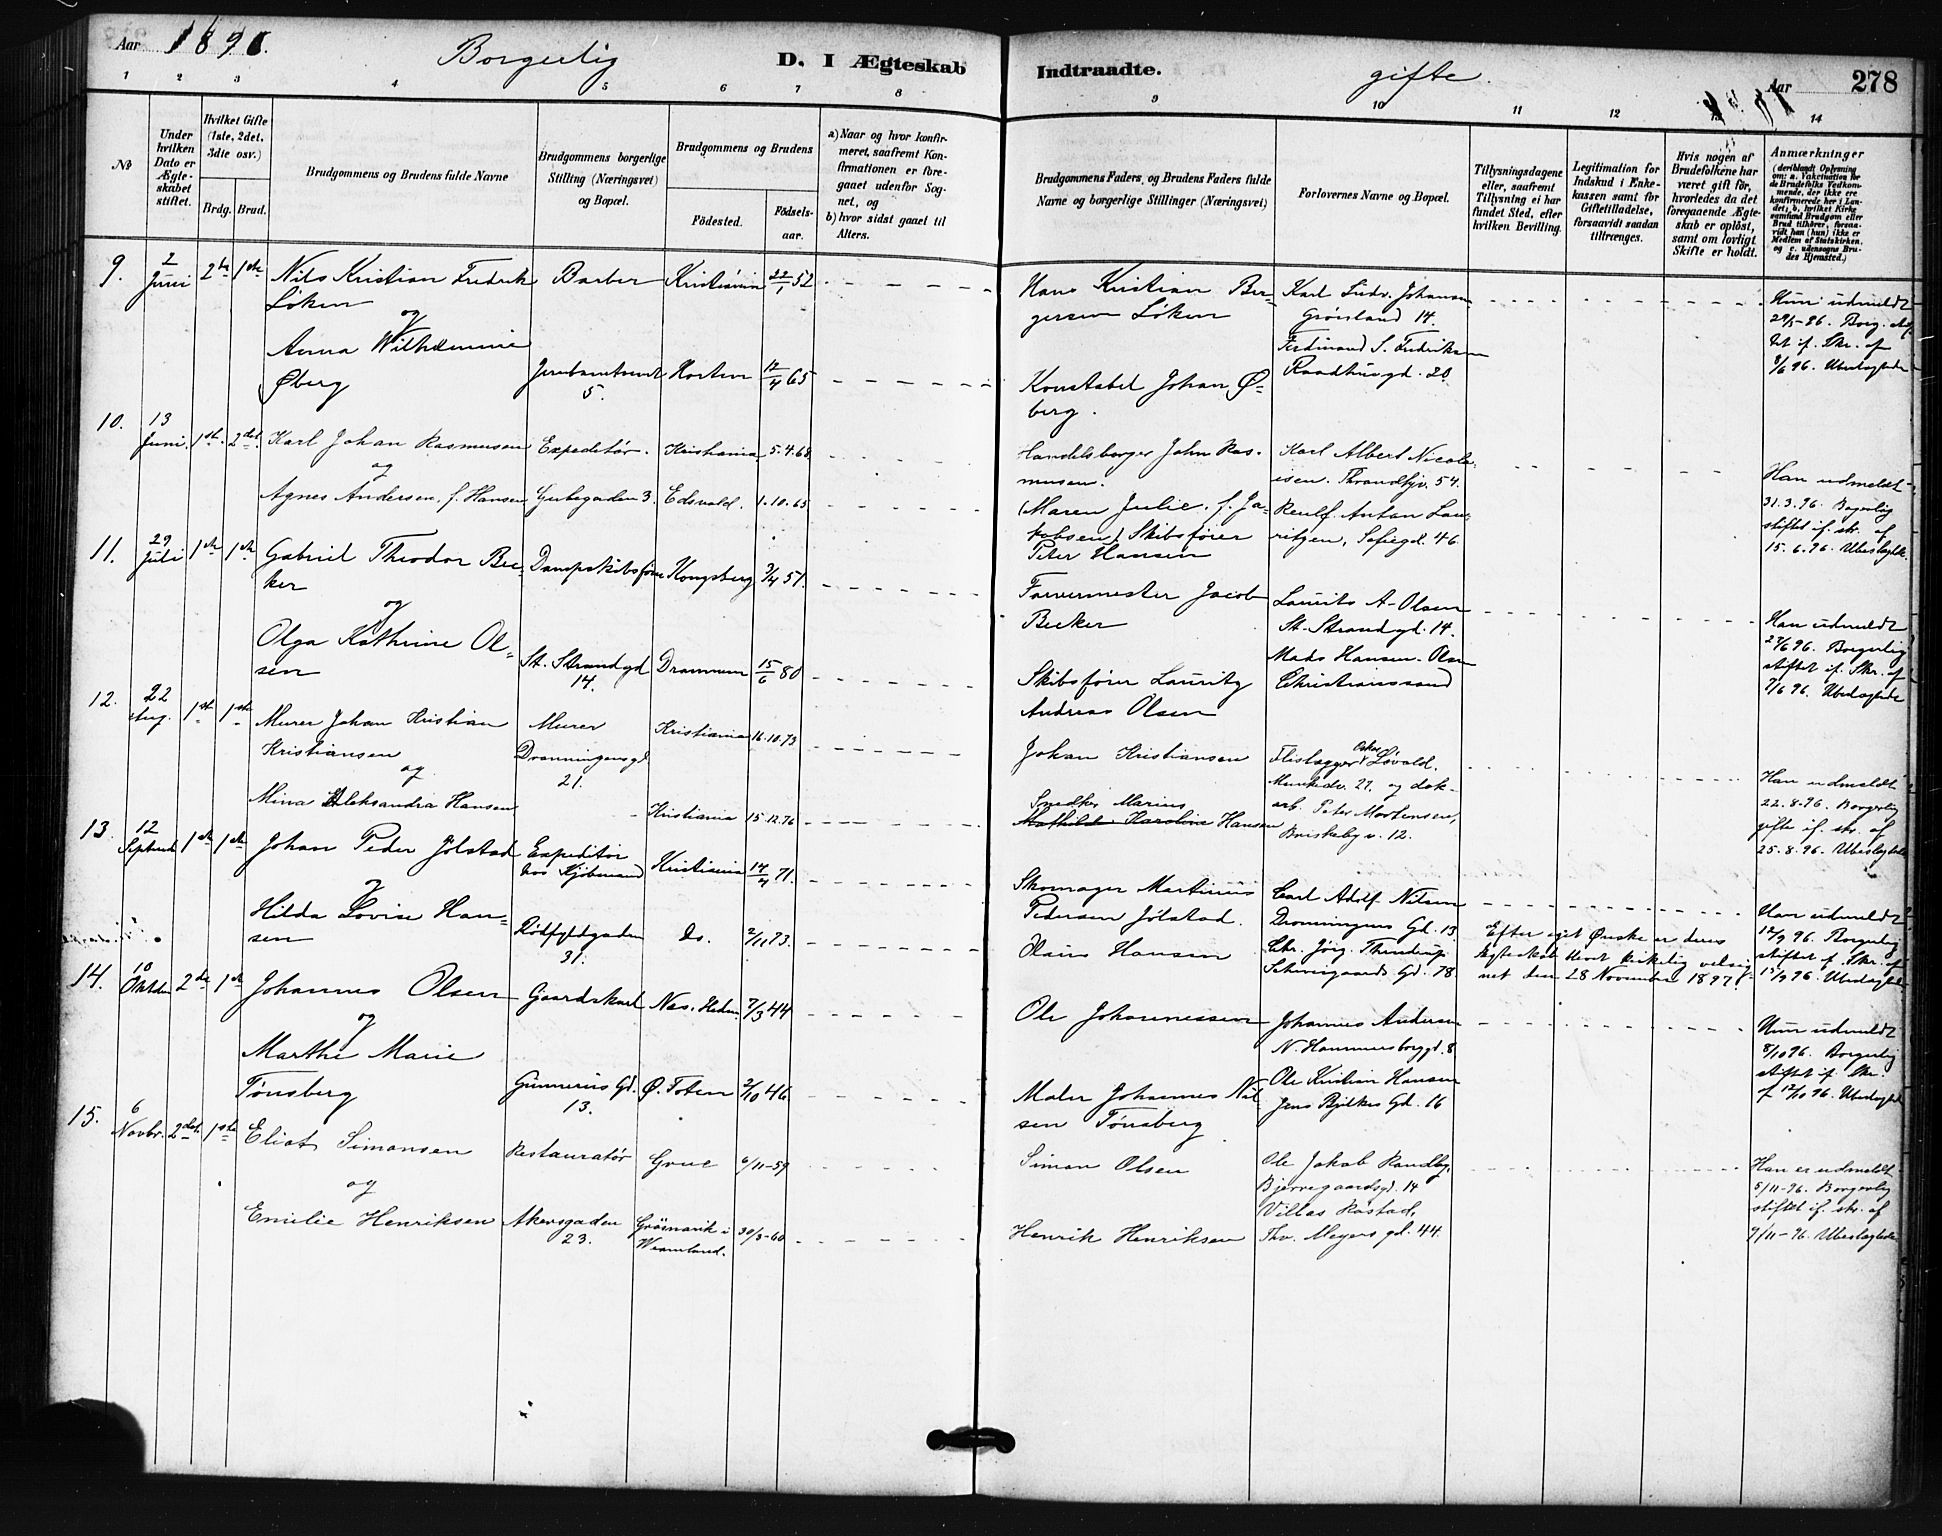 Aar 1896.
Borgerlig
D. I Ægteskab
Indtraadte.
gifte.
Aar
278
1 2 3 4 5 6 7 8 9 10 11 12 14
No
Under hvilken Dato er Ægteskabet stiftet.
Hvilket Gifte (1ste, 2det, 3die osv.)
Brdg. Brud.
Brudgommens og Brudens fulde Navne
Brudgommens borgerlige Stilling (Næringsvei) og Bopæl.
Brudgommens og Brudens
Fødested.
Fødselsaar.
a) Naar og hvor konfirmeret, saafremt Konfirmationen er foregaaet udenfor Sognet, og
b) hvor sidst gaaet til Alters.
Brudgommens Faders, og Brudens Faders fulde Navne og borgerlige Stillinger (Næringsvei)
Forlovernes Navne og Bopæl.
Tillysningsdagene eller, saafremt Tillysning ei har fundet Sted, efter hvilken Bevilling.
Legitimation for Indskud i Enkekassen samt for Giftetilladelse, forsaavidt saadan tiltrænges.
Hvis nogen af Brudefolkene har været gift før, hvorledes da det foregaaende Ægteskab er opløst, samt om lovligt Skifte er holdt.
Anmærkninger
(deriblandt Oplysning om: a. Vaksination for de Brudefolks Vedkommende, der ikke ere konfirmerede her i Landet; b. hvilket Kirkesamfund Brudgom eller Brud tilhører, forsaavidt han (hun) ikke er Medlem af Statskirken. og c. udensogns Brudes Hjemsted.)
9. 2 Juni 2de 1ste Nils Kristian Fredrik Løken
Barber Kristiania 22/1 52
Hans Kristian Bergersen Løken
Karl Ludv. Johansen
Grønland 14.
Hun udmeldt
29/5-96. Borg.
f. Skr. af
3/6 96. Ubeslægtede
og
Anna Wilhelmine Øberg
Jernbanetorvet 5. Horten 12/4 65
Konstabel Johan Øberg.
Ferdinand S. Fredriksen
Raadhusgd. 20.
10. 13 Juni 1ste 2det Karl Johan Rasmussen
Expeditør. Kristiania 5.4.68
Handelsborger John Rasmussen.
Karl Albert Nicolaisen. Throndhjv. 54.
Han udmeldt
31.3.96. Borgerlig
stiftet if. skr. af
15.6.96. Ubeslægtede.
og
Agnes Andersen, f. Hansen
Grubegaden 3. Edsvold. 1.10.65
(Maren Julie, f. Jakobsen) Skibsfører
Peter Hansen
Anton Lauritzen, Sofiegd. 46.
11. 29 Juli 1ste 1ste Gabriel Theodor Becker
Dampskibsfører Kongsberg 3/4 57.
Farvermester Jacob Becker
Laurits A. Olsen
St. Strandgd. 14.
Han udmeldt
27/6 96. Borgerlig
stiftet if. Skr. af
7/6 96. Ubeslægtede
og
Olga Kathrine Olsen
St. Strandgd 14. Drammen 15/6 80
Skibsfører Lauritz Andreas Olsen
Mads Hansen-Olsen
Christianssand
12. 22 Aug. 1ste 1ste Murer Johan Kristian Kristiansen
Murer
Dronningensgd 21.
Kristiania 16.10.73
Johan Kristiansen
Flislægger Oskar Løvold.
Munkedv. 27. og dekarb. Peter Mortensen,
Briskeby v. 12.
Han udmeldt
22.8.96. Borgerlig
gifte if. skr. af
25.8.96. Ubeslægtede
og
Mina Aleksandra Hansen
Kristiania 15.12.76
Snedker Marius
Mathilde Karoline Hansen
13. 12 Septemb 1ste 1ste Johan Peder Jølstad
Expeditør hos Kjøbmand Kristiania 14/4 71.
Skomager Martinius Pedersen Jølstad.
Carl Adolf Nilsen
Dronningens Gd. 13.
Han udmeldt
12/9 96. Borgerlig
stiftet if. Skr. af
15/9 96. Ubeslægtede
og
Hilda Lovise Hansen
Rødfyldgaden 31. Do. 2/11 73.
Olaus Hansen
Chr. Jörg. Thrudrup
Schweigaards Gd. 78
Efter eget Ønske er deres
Ægteskab blevet kirkelig velsignet den 28 November 1897.
14. 10 Oktober 2de 1ste Johannes Olsen
Gaardskarl Næs. Hedm. 7/3 44
Ole Johannessen
Johannes Andersen
N. Hammersborggd. 8
Hun udmeldt
8/10 96. Borgerlig
stiftet if. Skr.
af 12/10 96. Ubeslægtede
og
Marthe Marie Tønsberg
Gunnerius Gd. 13. Ø. Toten 2/10 46.
Maler Johannes Nilsen Tønsberg
Ole Kristian Hansen
Jens Bjelkes Gd. 16
15. 6 Novbr. 2det 1ste Eliat Simonsen
Restauratør Grue 6/11-59
Simon Olsen
Ole Jakob Randby,
Bjerregaardsgd. 14
Han er udmeldt
5/11-96. Borgerlig
stiftet if. skr. af
7/11-96. Ubeslægtede
og
Emilie Henriksen
Akersgaden 23. Gräsmark i Wermland. 30/3-60
Henrik Henriksen
Villas Rostad,
Thv. Meyers gd. 44.